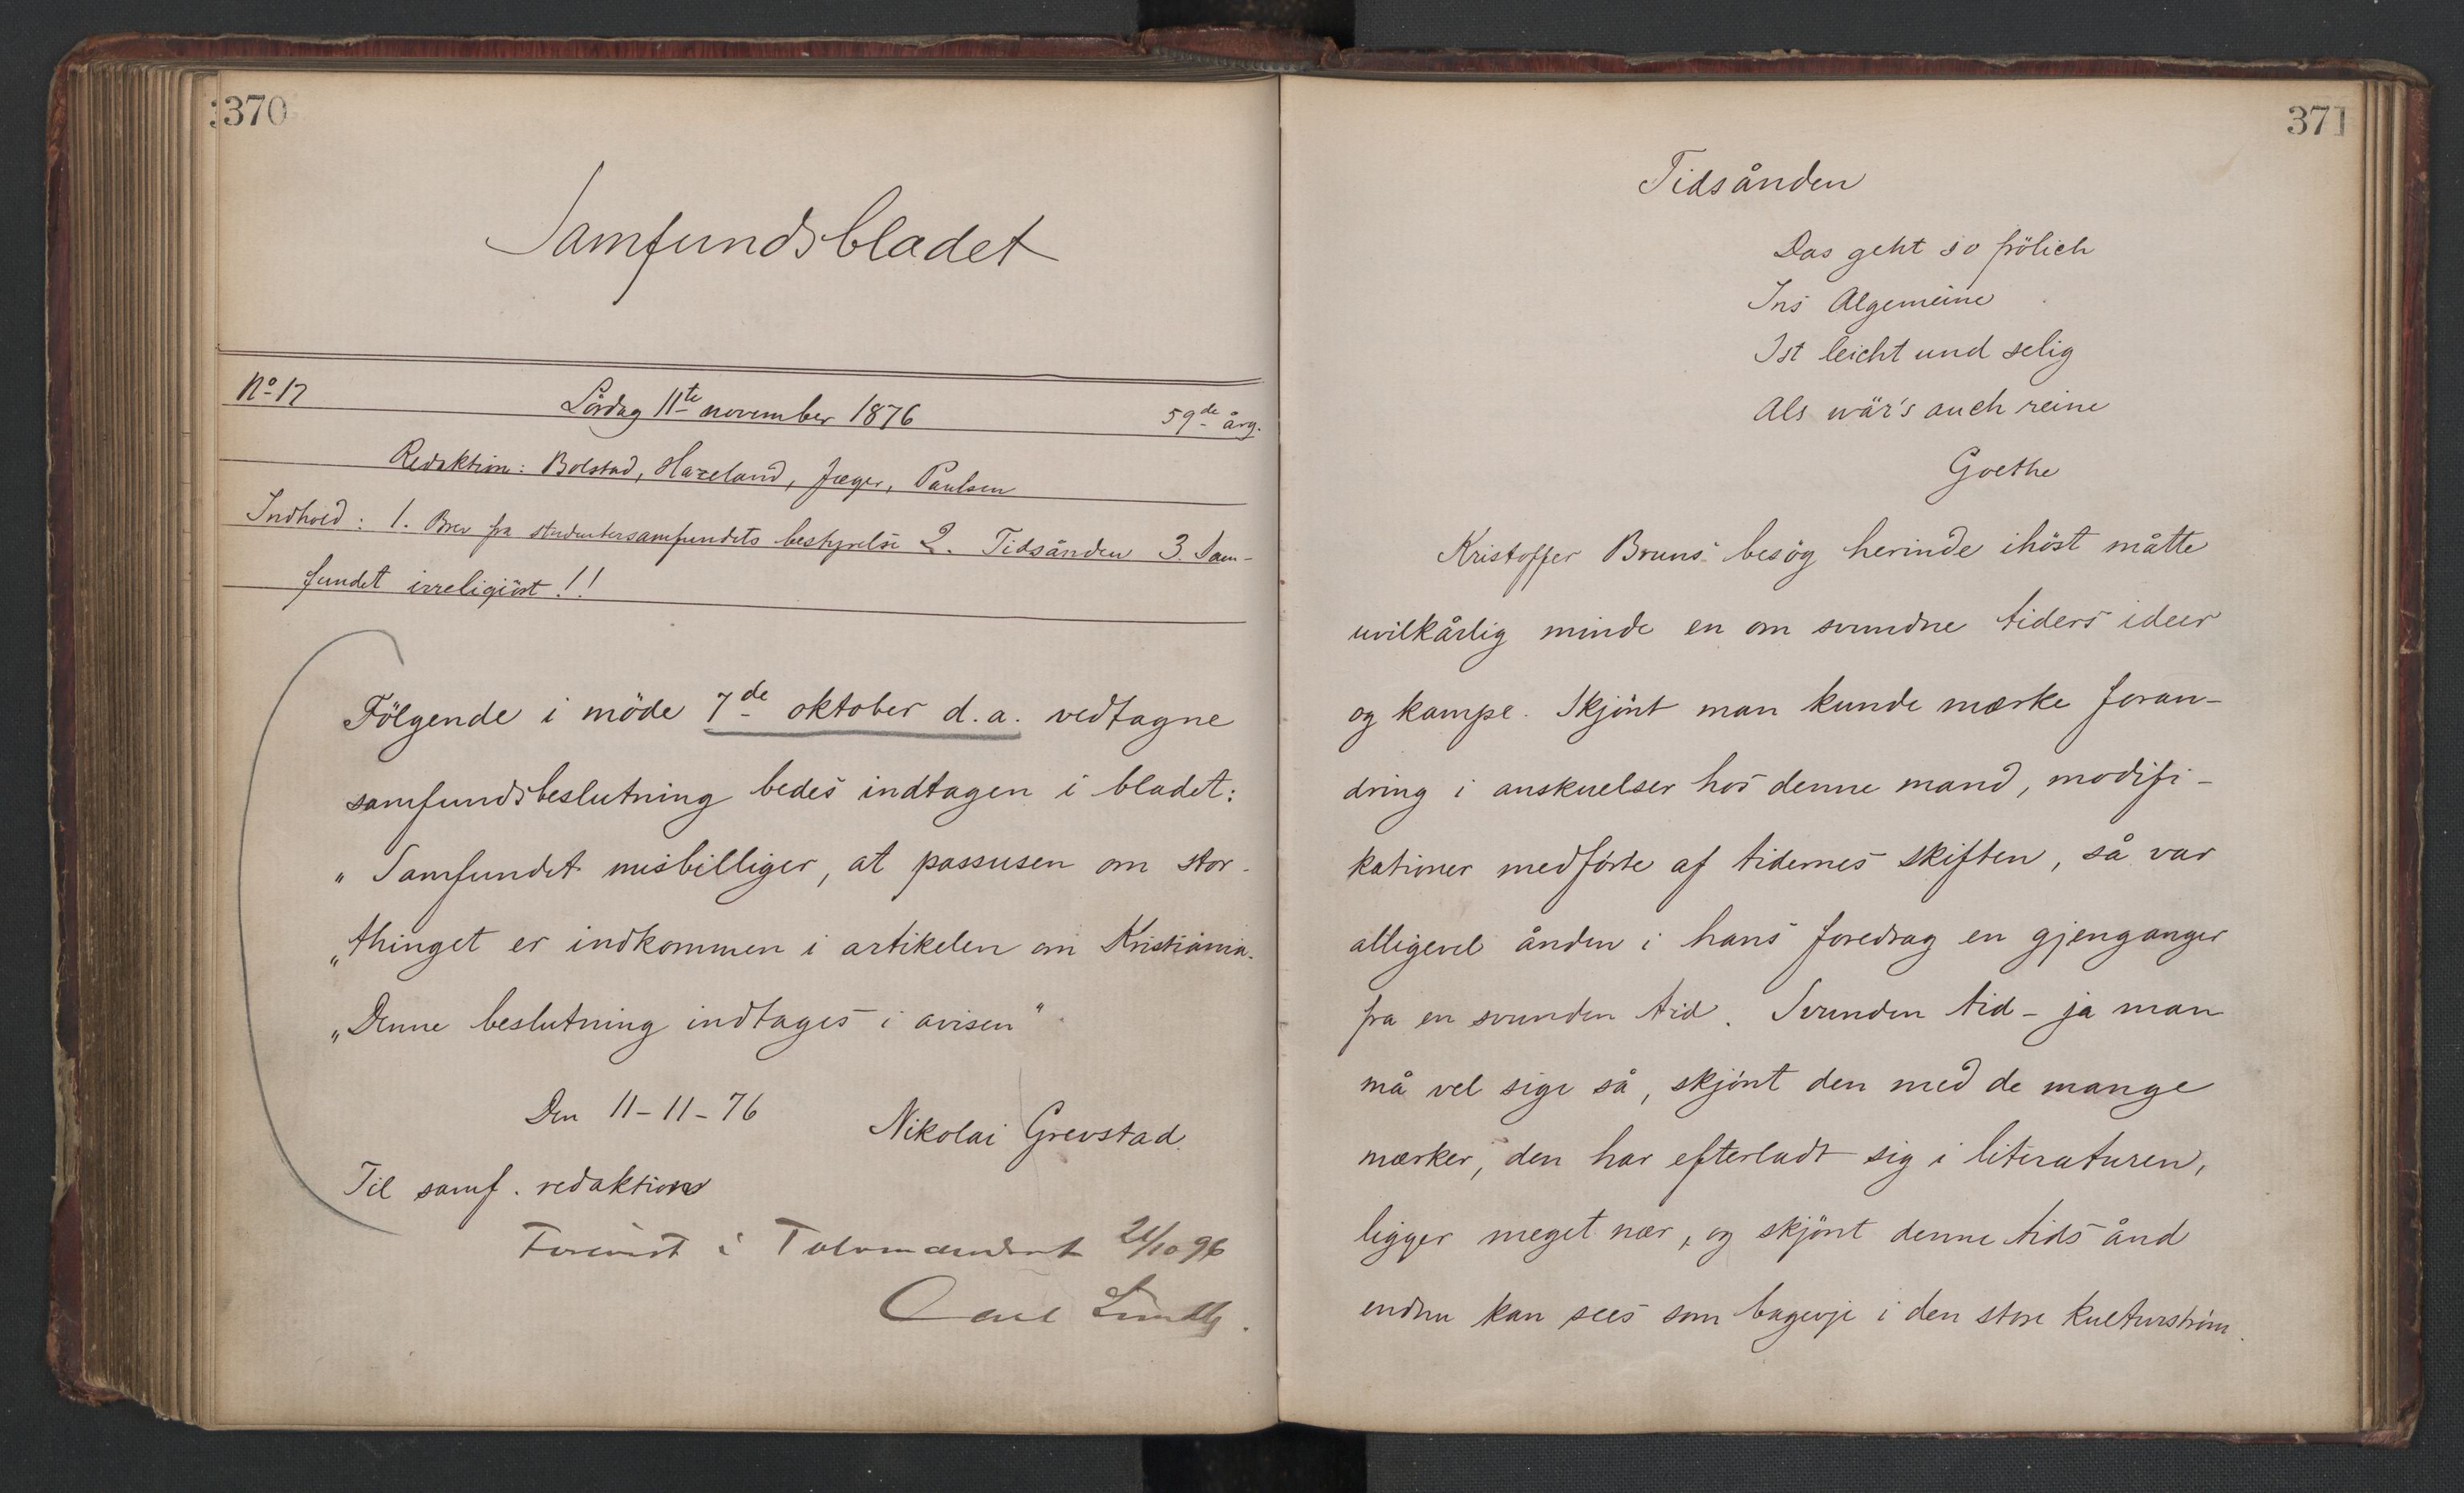 370
Samfundsbladet
No 12
Lördag 11te november 1876
59de årg.
Redaktion: Bolstad, Hazeland, Jæger, Paulsen
Indhold: 1. Brev fra studentersamfundets bestyrelse 2. Tidsånden 3. Sam-
fundet irreligiöst!!
Fölgende i möde 7de oktober d. a. vedtagne
samfundsbeslutning bedes indtagen i bladet:
„Samfundet misbilliger, at passusen om stor-
„thinget er indkommen i artikelen om Kristiania.
„Denne beslutning indtages i avisen"
Den 11-11-76
Nikolai Grevstad.
Til samf. redaktion
i 21/10 96
Carl
371
Tidsånden
Das geht so frölich
Ins Algemeine
Ist leicht und selig
Als wär's auch reine
Goethe
Kristoffer Bruns besög herinde ihöst måtte
uvilkårlig minde en om svundne tiders ideer
og kampe. Skjönt man kunde mærke foran-
dring i anskuelser hos denne mand, modifi-
kationer medförte af tidernes skiften, så var
alligevel ånden i hans foredrag en gjenganger
fra en svunden tid. Svunden tid - ja man
må vel sige så, skjönt den med de mange
mærker, den har efterladt sig i literaturen,
ligger meget nær, og skjönt denne tids ånd
endnu kan sees som bagevje i den store kulturström.